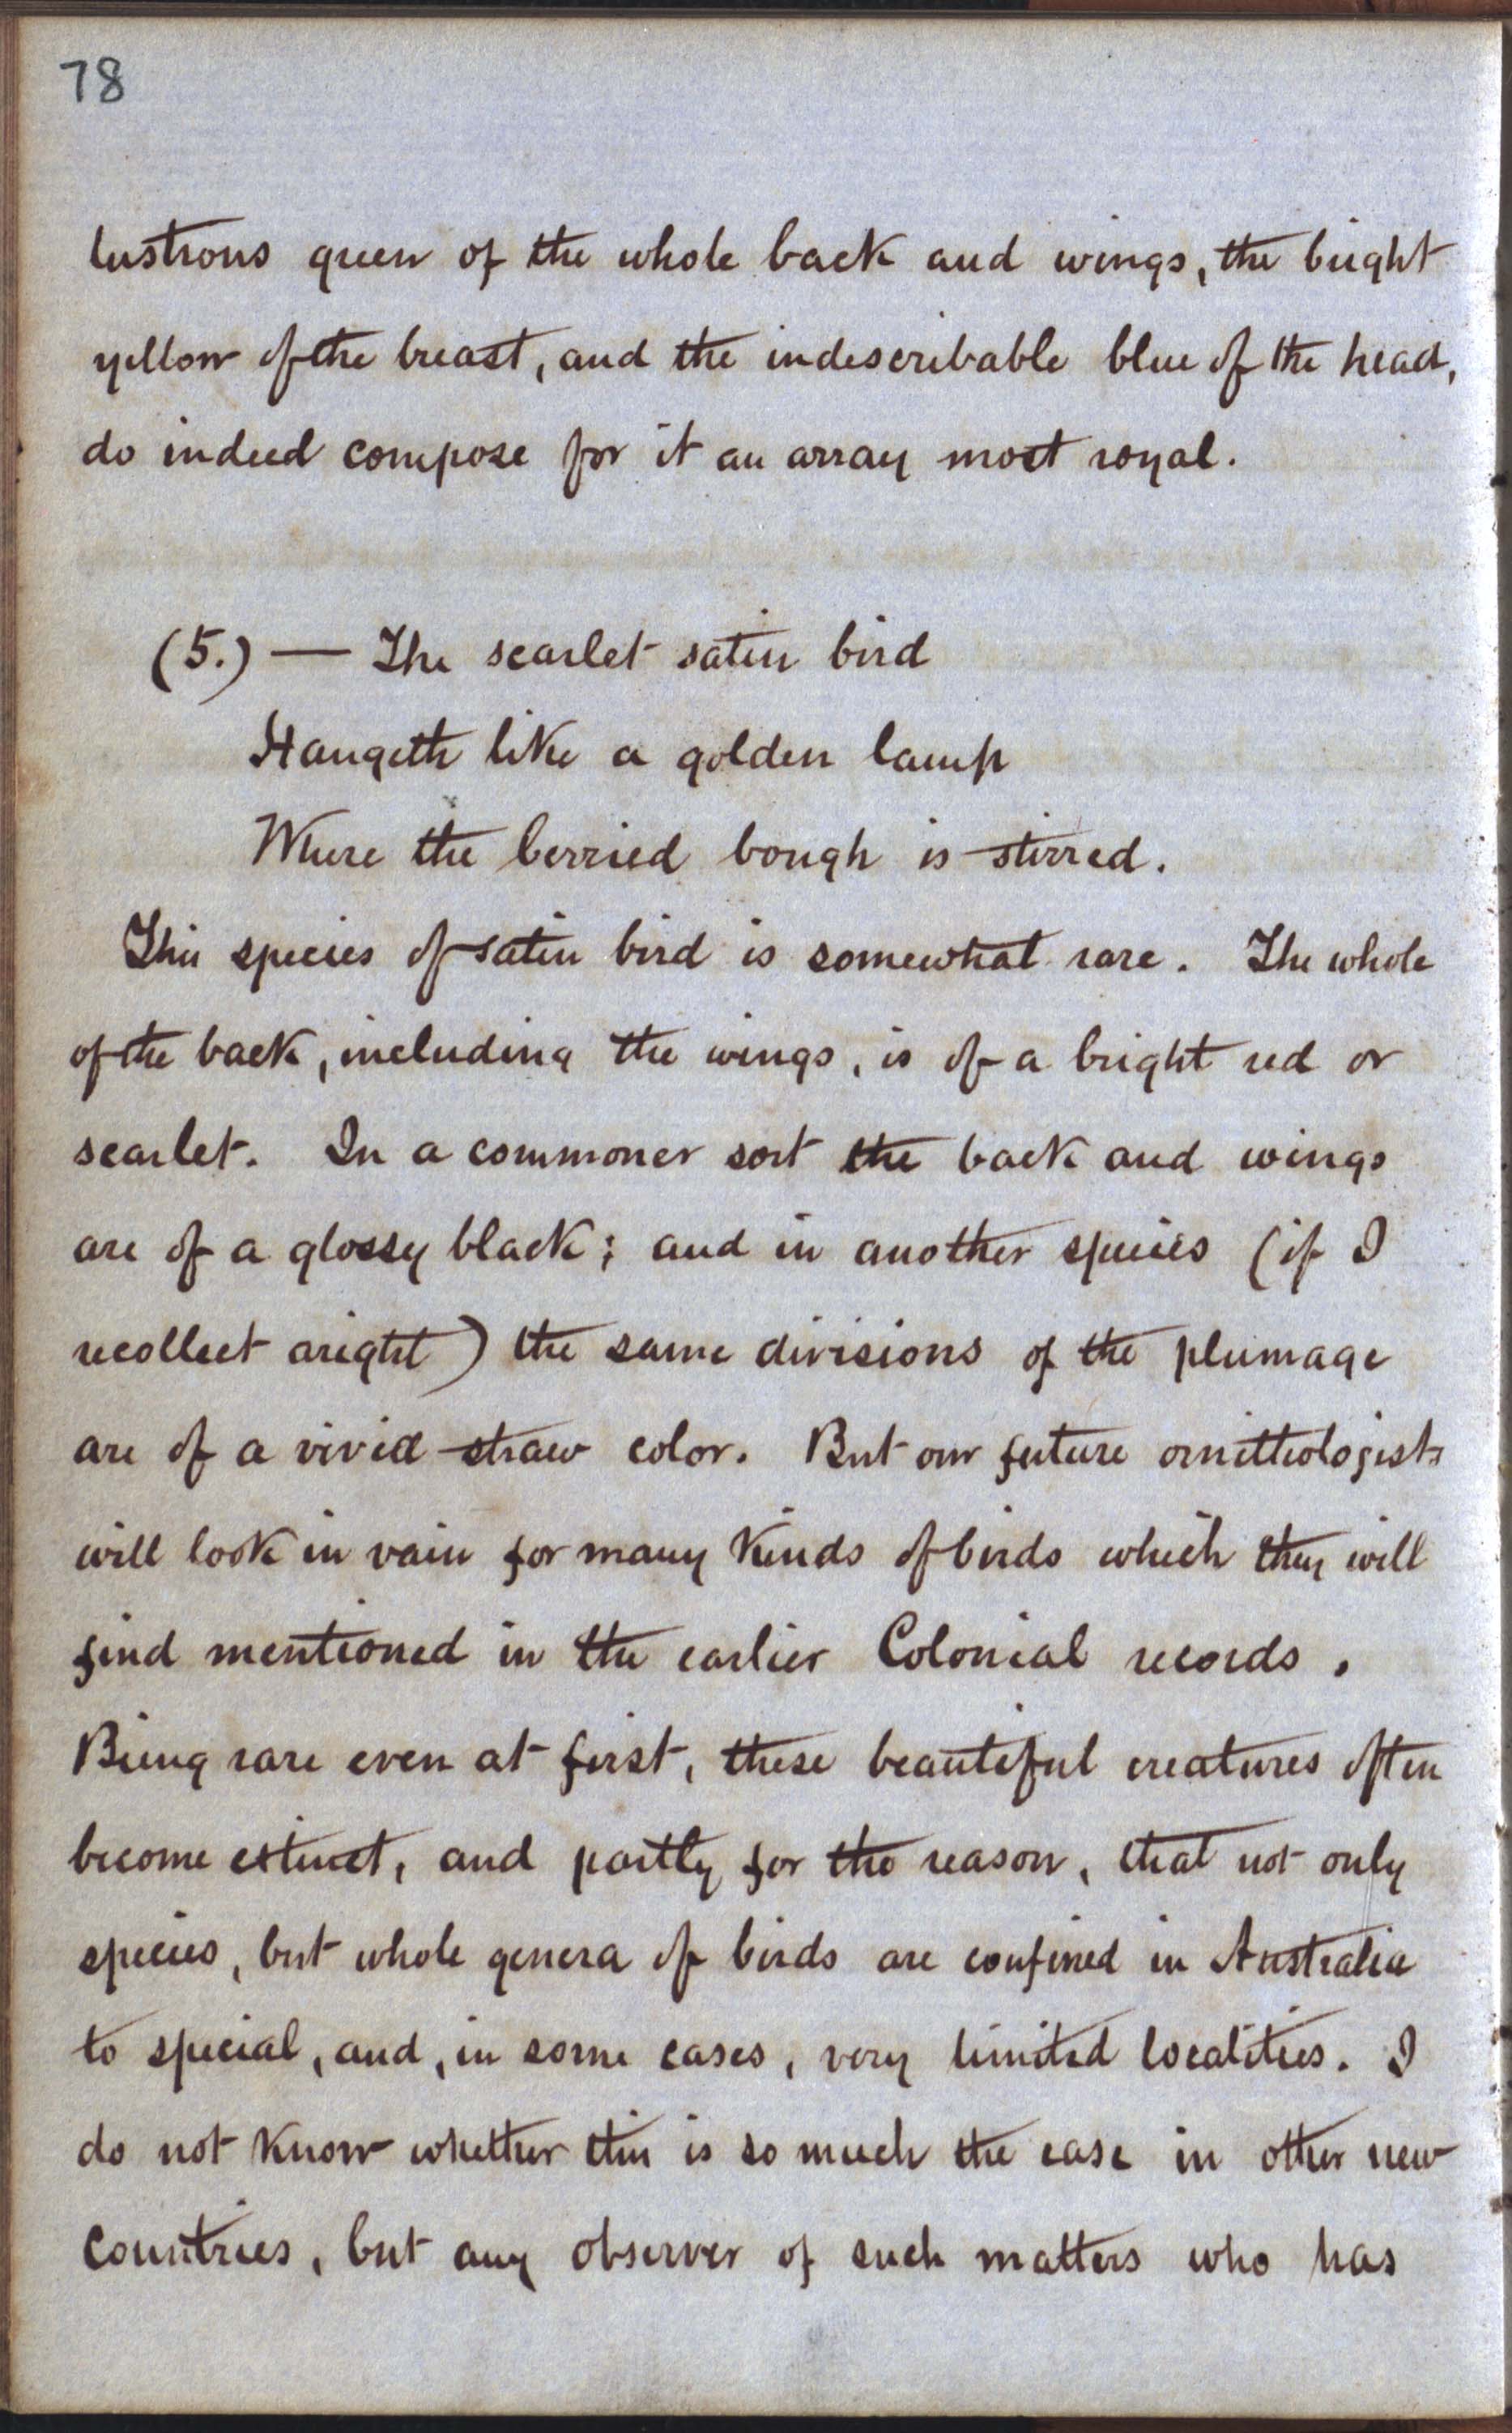 78
lustrous green of the whole back and wings, the bright
yellow of the breast, and the indescribable blue of the head,
do indeed compose for it an array most royal.
(5.) — The scarlet satin bird
Hangeth like a golden lamp
Where the berried bough is stirred.
This species of satin bird is somewhat rare. The whole
of the back, including the wings, is of a bright red or
scarlet. In a commoner sort the back and wings
are of a glossy black; and in another species (if I
recollect aright) the same divisions of the plumage
are of a vivid straw color. But our future ornithologists
will look in vain for many kinds of birds which they will
find mentioned in the earlier Colonial records.
Being rare even at first, these beautiful creatures often
become extinct, and partly for the reason, that not only
species, but whole genera of birds are confined in Australia
to special, and, in some cases, very limited localities. I
do not know whether this is so much the case in other new
countries, but any observer of such matters who has